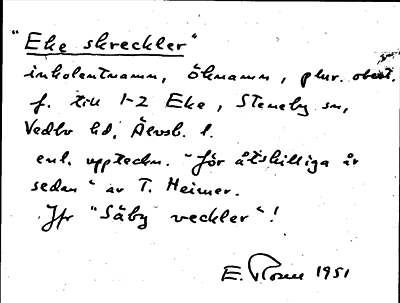 "Eke skreckler"
inkolentnamn, öknamn, plur. obest.
f. till 1-2 Eke, Steneby sn,
Vedbo hd, Älvsb. l.
enl. uppteckn. "för åtskilliga år
sedan" av T. Heimer.
Jfr "Säby veckler"!
E. Rosén 1951